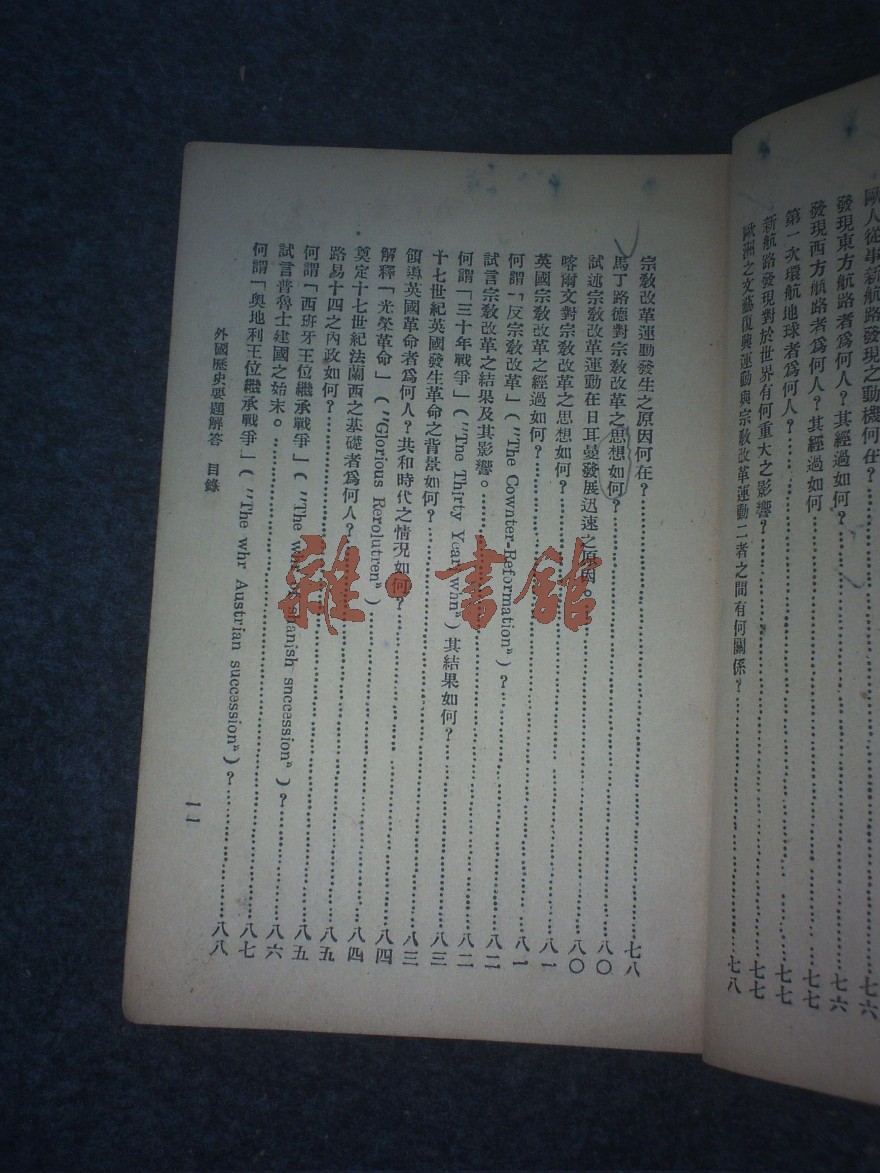 歐人從事新航路發現之動機何在?……七六
發現東方航路者爲何人?其經過如何?……七六
發現西方航路者爲何人?其經過如何……七七
第一次環航地球者爲何人?……七七
新航路發現對於世界有何重大之影響?……七七
歐洲之文藝復興運動與宗敎改革運動二者之間有何關係?……七八
宗敎改革運動發生之原因何在?……七八
馬丁路德對宗敎改革之思想如何?……八〇
試述宗敎改革運動在日耳曼發展迅速之原因。……八〇
喀爾文對宗敎改革之思想如何?……八一
英國宗敎改革之經過如何?……八一
何謂「反宗敎改革」("The Cownter-Reformation")?……八二
試言宗敎改革之結果及其影響。……八二
何謂「三十年戰爭」("Tne Thirty Year whn")其結果如何?……八三
十七世紀英國發生革命之背景如何?……八三
領導英國革命者爲何人?共和時代之情況如何?……八四
解釋「光榮革命」("Glorious Rerolutren")……八四
奠定十七世紀法蘭西之基礎者爲何人?……八五
路易十四之內政如何?……八五
何謂「西班牙王位繼承戰爭」("The whr Spanish snccession")?……八六
試言普魯士建國之始末。……八七
何謂「奧地利王位繼承戰爭」("The whr Austrian succession")?……八八
外國歷史要題解答 目錄
一一
雜·書館